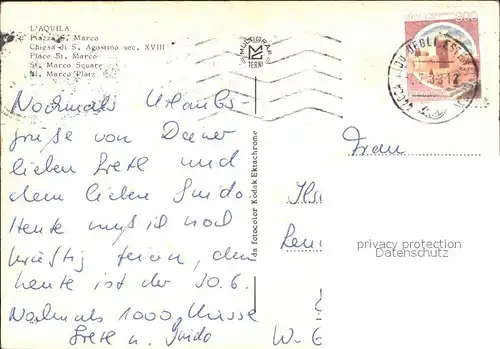 L'AQUILA
Piazza S. Marco
Chiesa di S. Agostino sec. XVIII
Place St. Marco
St. Marco Square
St. Marco Platz
MULTIGRAF
TERNI
300
Nochmals Urlaubs-
grüße von Deiner
lieben Grete und
dem lieben Guido.
Heute muß ich noch
kräftig feiern, denn
heute ist der 30.6.
Nochmals 1000 Küsse
Grete u. Guido
da fotocolor Kodak Ektachrome
Frau
privacy protection
Datenschutz
W-6